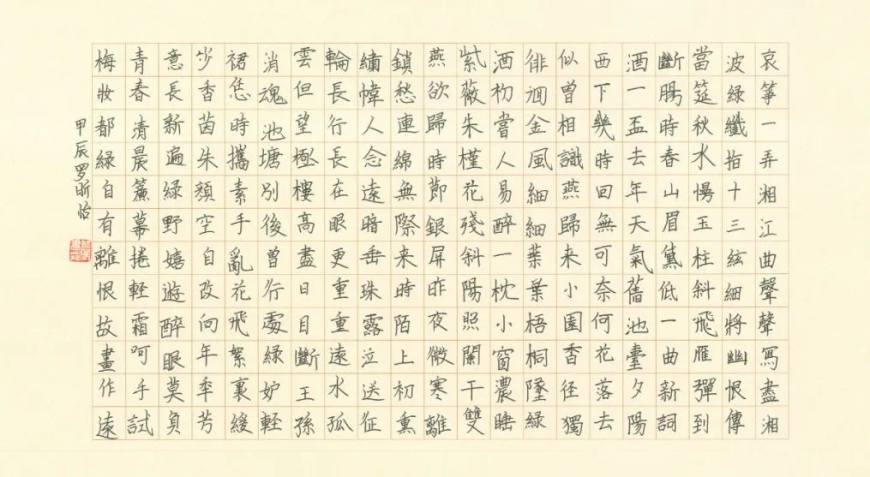 哀箏一弄湘江曲聲聲寫盡湘
波綠纖指十三絃細將幽恨傳
當筵秋水慢玉柱斜飛雁彈到
斷腸時春山眉黛低一曲新詞
酒一盃去年天氣舊池臺夕陽
西下幾時回無可奈何花落去
似曾相識燕歸来小園香徑獨
徘徊金風細細葉葉梧桐墜綠
酒初嘗人易醉一枕小窗濃睡
紫薇朱槿花殘斜陽照闌干雙
燕欲歸時節銀屏昨夜微寒離
鎖愁連綿無際来時陌上初熏
繡幃人念遠暗垂珠露泣送征
輪長行長在眼更重重遠水孤
雲但望極樓高盡日目斷王孫
消魂池塘別後曾行處綠妒輕
裙恁時攜素手亂花飛絮裏緩
步香茵朱顏空自改向年秊芳
意長新遍綠野嬉遊醉眼莫負
青春清晨簾幕捲輕霜呵手試
梅妝都綠自有離恨故畫作遠
甲辰罗昕怡